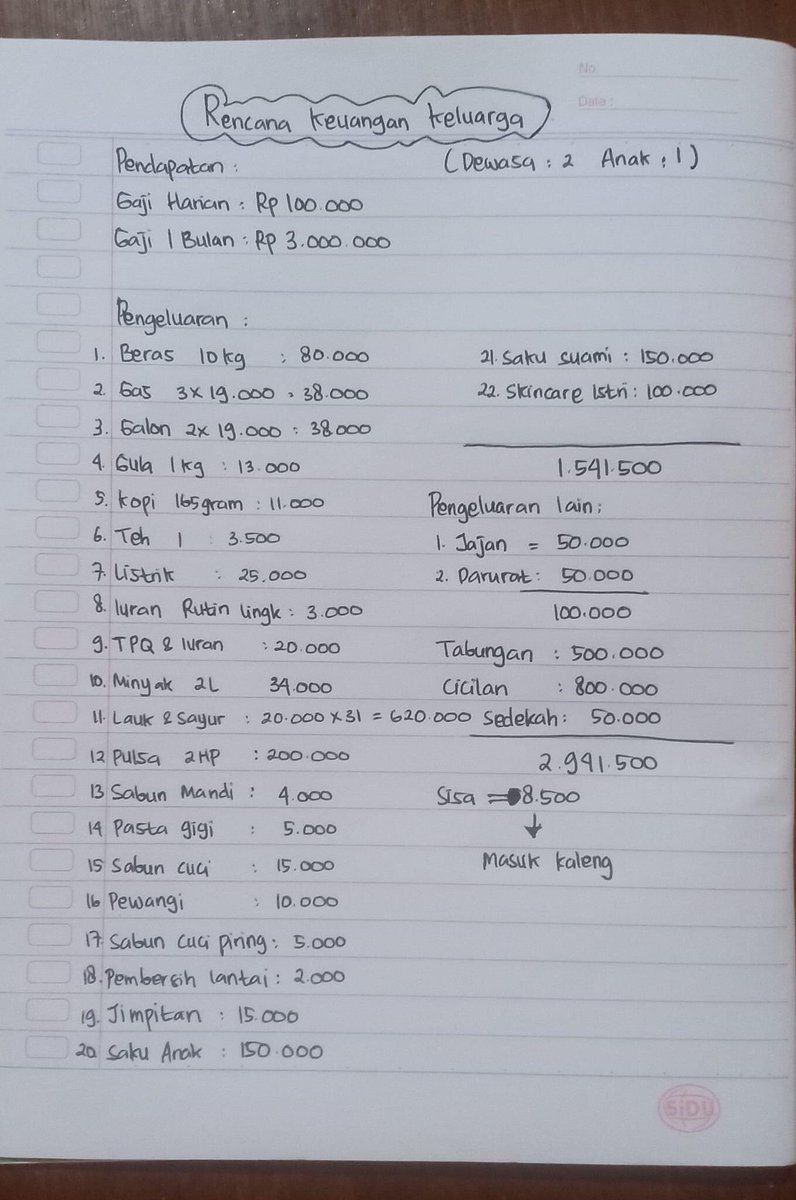 No
Date :
Rencana Keuangan Keluarga
Pendapatan :
(Dewasa : 2 Anak : 1)
Gaji Harian : Rp 100.000
Gaji 1 Bulan : Rp 3.000.000
Pengeluaran :
1. Beras 10kg : 80.000
2. Gas 3x19.000 = 38.000
3. Galon 2x 19.000 : 38.000
4. Gula 1kg : 13.000
5. Kopi 165gram : 11.000
6. Teh 1 : 3.500
7. Listrik : 25.000
8. Iuran Rutin lingk : 3.000
9. TPQ & Iuran : 20.000
10. Minyak 2L 34.000
11. Lauk & Sayur : 20.000 x 31 = 620.000
12 Pulsa 2HP : 200.000
13 Sabun Mandi : 4.000
14 Pasta gigi : 5.000
15 Sabun cuci : 15.000
16 Pewangi : 10.000
17. Sabun cuci piring : 5.000
18. Pembersih lantai : 2.000
19. Jimpitan : 15.000
20. Saku Anak : 150.000
21. Saku suami : 150.000
22. Skincare Istri : 100.000
1.541.500
Pengeluaran lain :
1. Jajan = 50.000
2. Darurat : 50.000
100.000
Tabungan : 500.000
Cicilan : 800.000
Sedekah : 50.000
2.991.500
Sisa = 8.500
↓
Masuk kaleng
SiDU